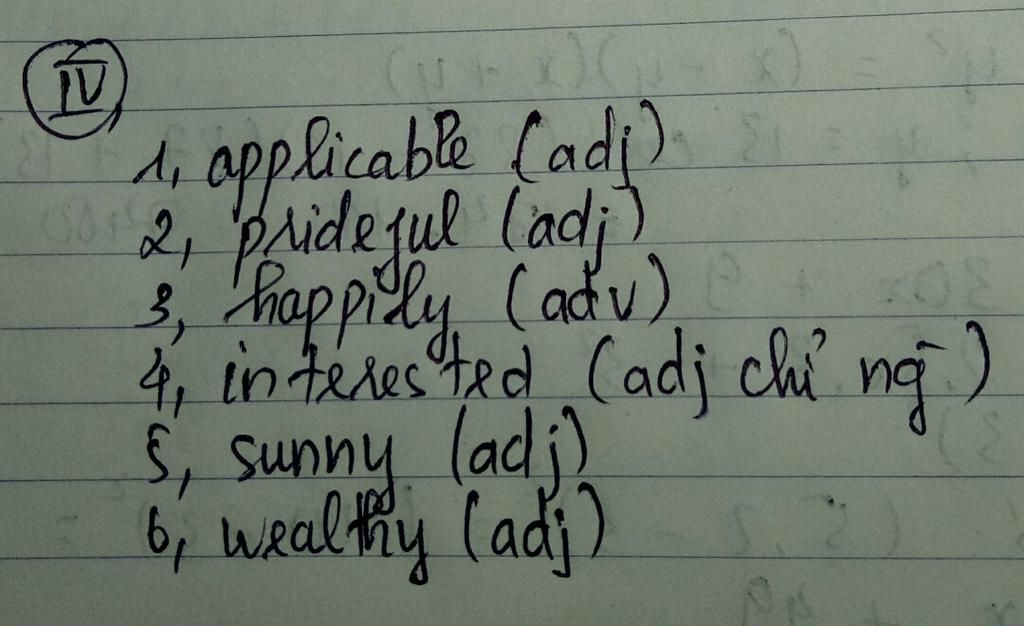 IV
1, applicable (adj)
2, prideful (adj)
3, happily (adv)
4, interested (adj chỉ ng~)
5, sunny (adj)
6, wealthy (adj)